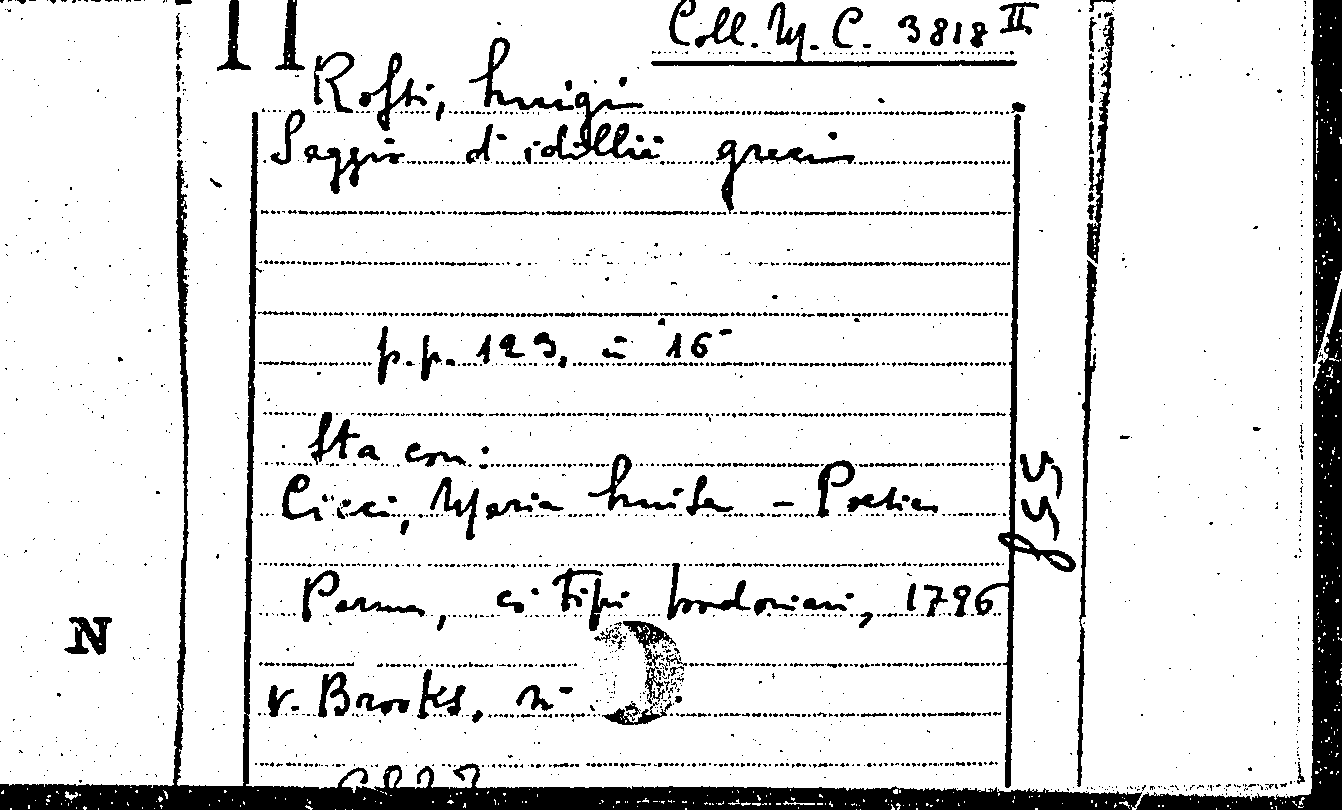 Coll. M. C. 3818 II
Rosti, Luigi
Saggio d'idillii greci
p.p. 123, in 16°
Sta con:
Cicci, Maria Luisa – Poesie
Parma, co' Tipi bodoniani, 1796
v. Brooks, n°
N